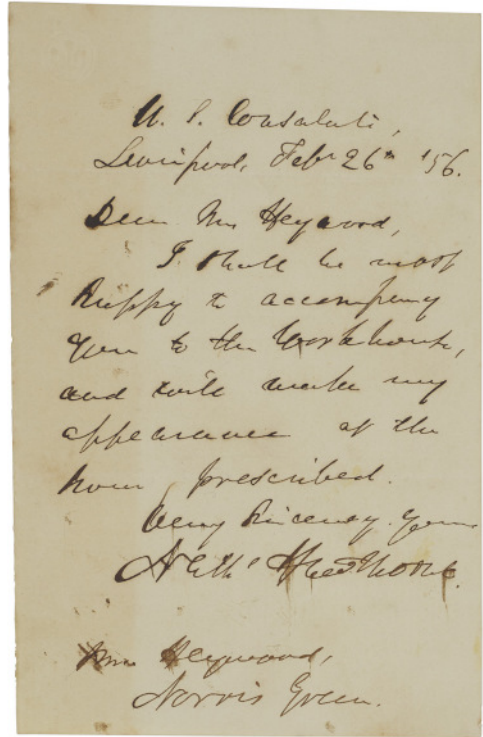 U. S. Consulate,
Liverpool, Feby 26th '56.
Dear Mrs Heywood,
I shall be most
happy to accompany
you to the Workhouse,
and will make my
appearance at the
hour prescribed.
Very Sincerely Yours
Nathl Hawthorne.
Mrs Heywood,
Norris Green.